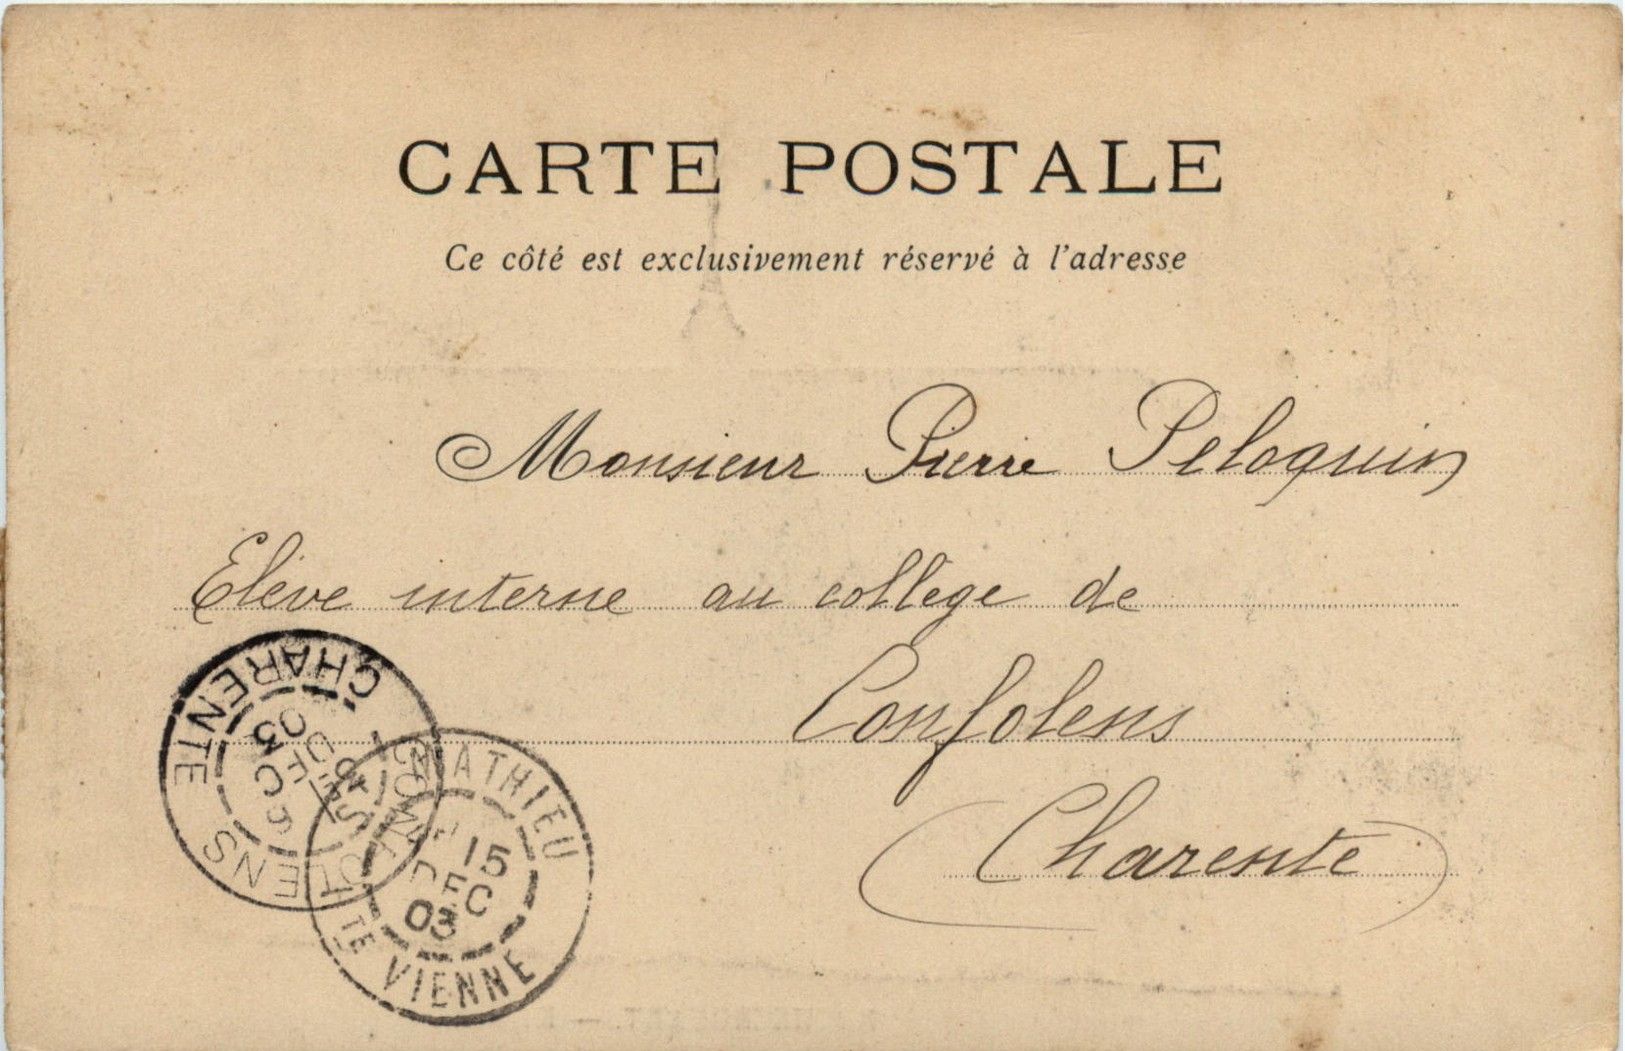 CARTE POSTALE
Ce côté est exclusivement réservé à l'adresse
Monsieur Pierre Peloquin
Elève interne au collège de
Confolens
(Charente)
CHARENTE
DEC
03
MATHIEU
15
DEC
03
TE VIENNE